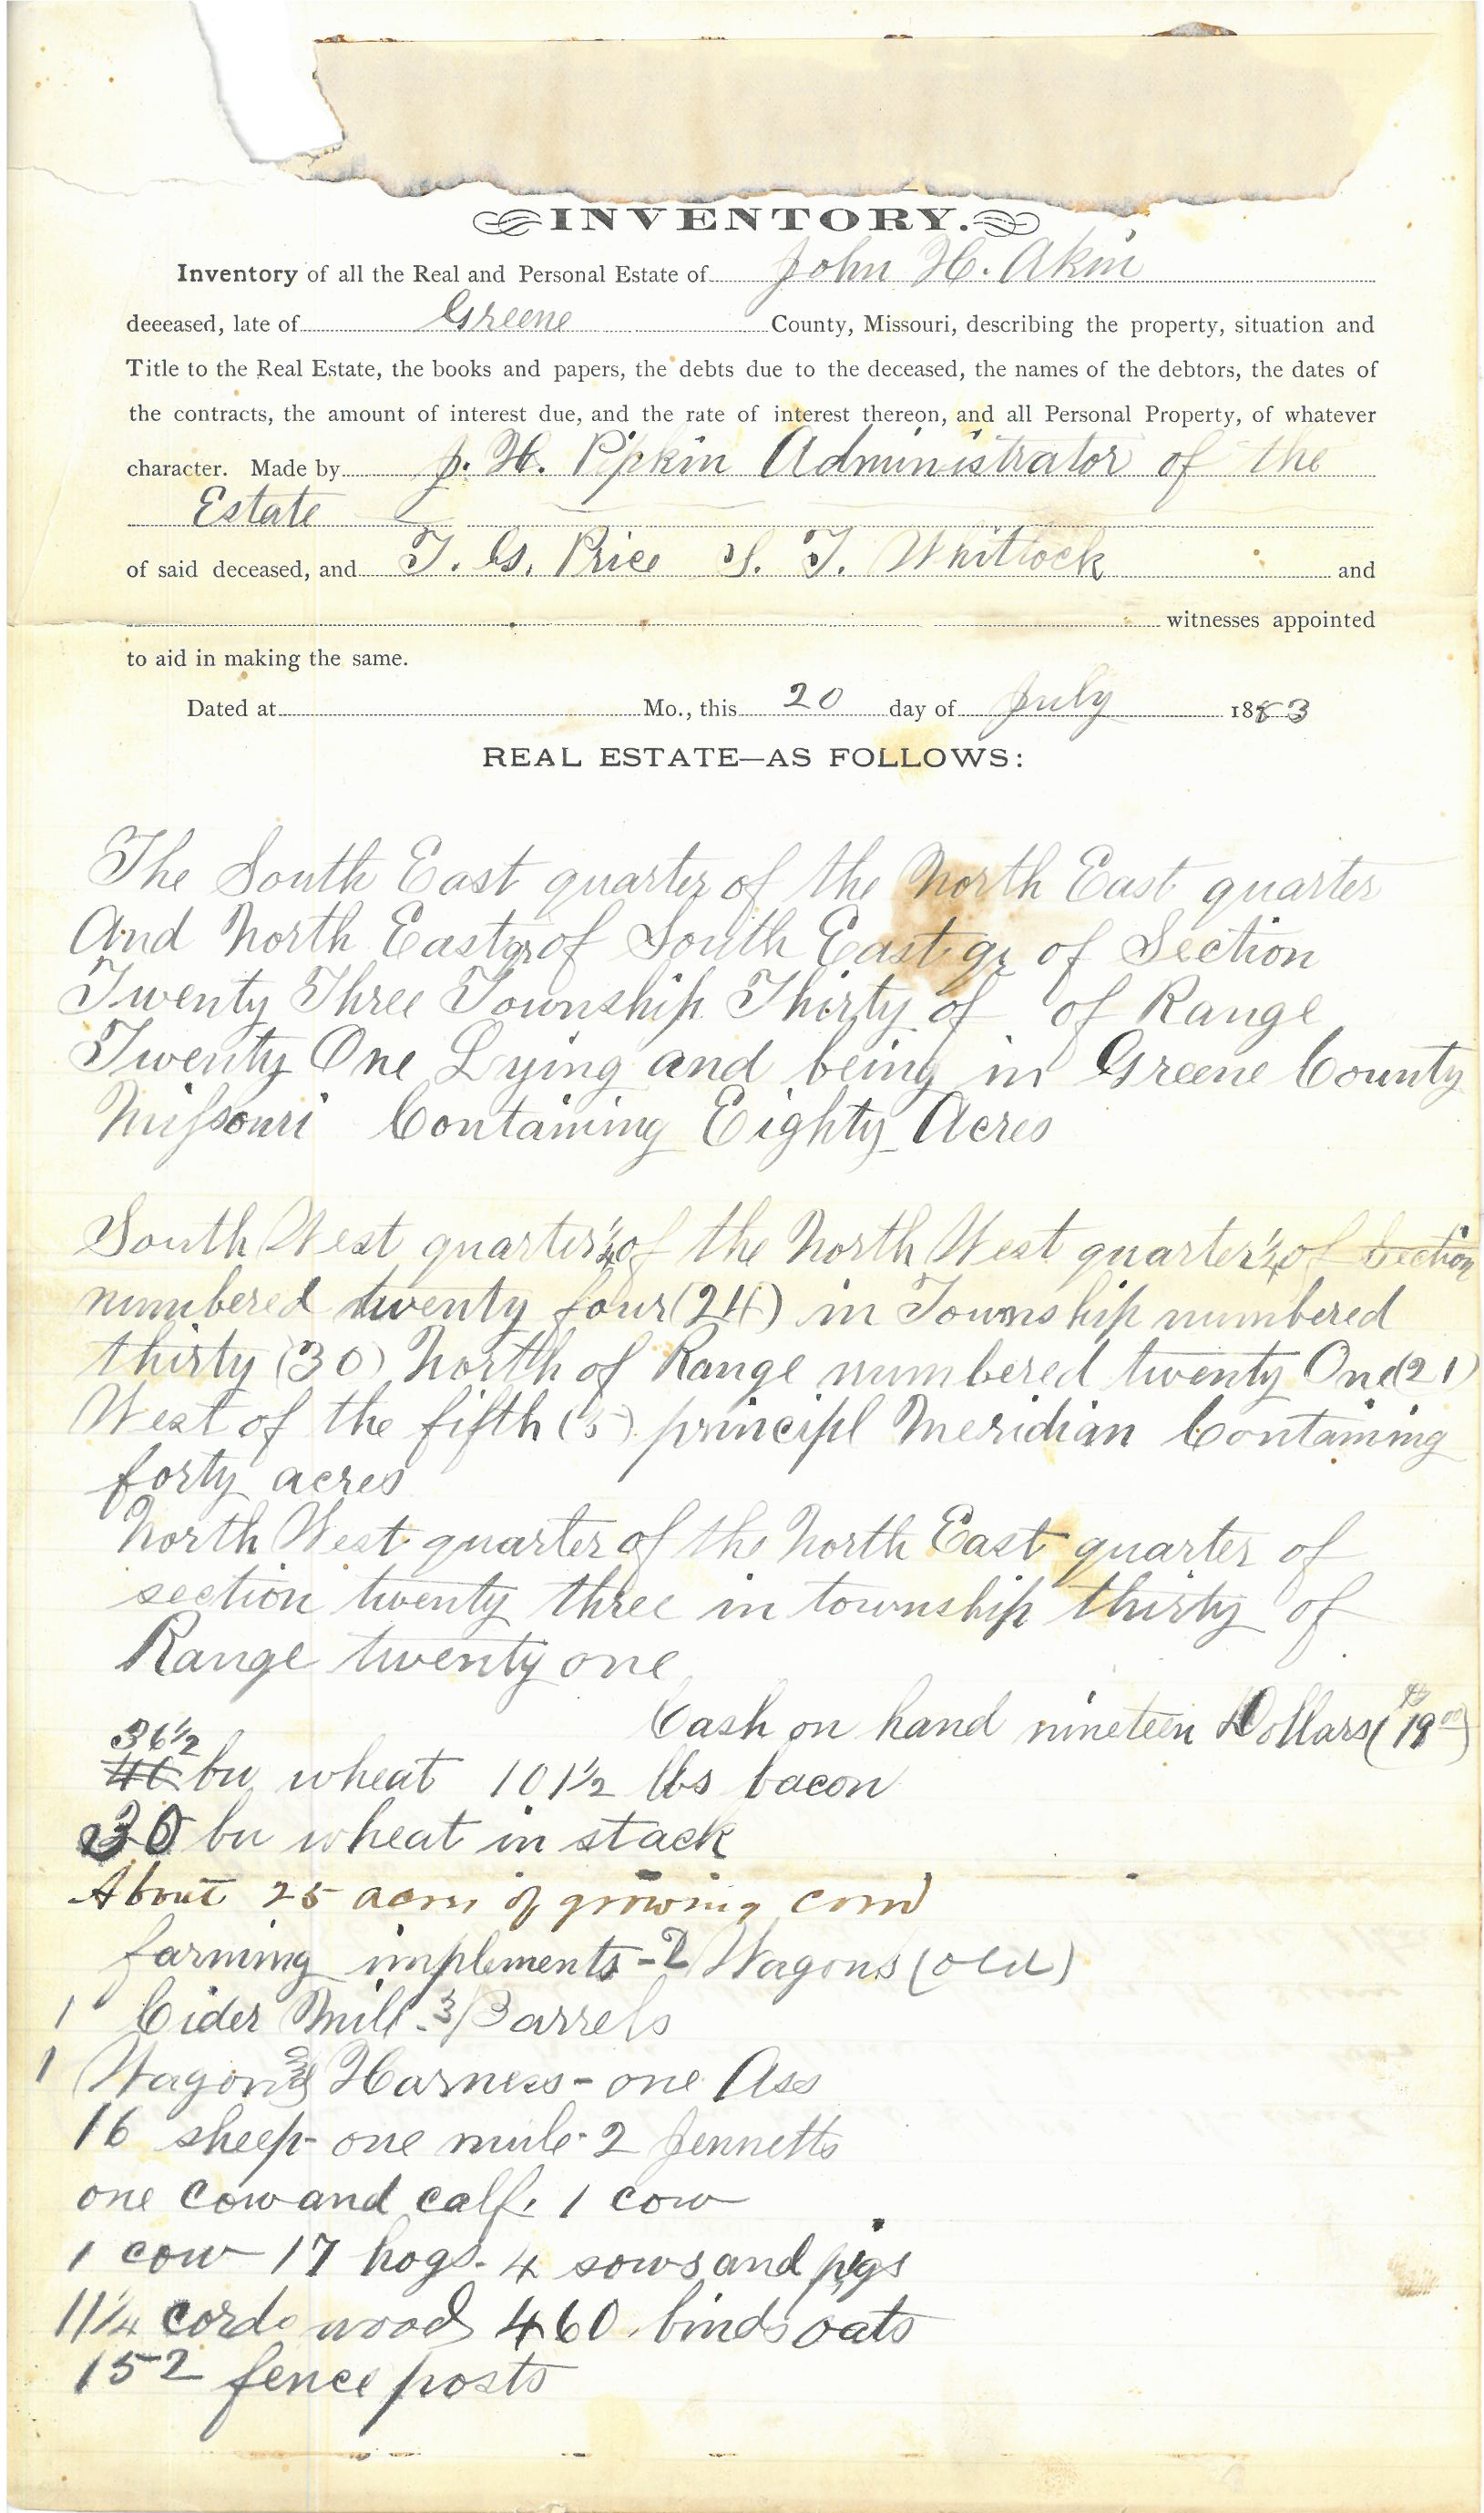 INVENTORY.
Inventory of all the Real and Personal Estate of John H. Akin
deceased, late of Greene County, Missouri, describing the property, situation and
Title to the Real Estate, the books and papers, the debts due to the deceased, the names of the debtors, the dates of
the contracts, the amount of interest due, and the rate of interest thereon, and all Personal Property, of whatever
character. Made by J. H. Pipkin Administrator of the
Estate
of said deceased, and T. G. Price S. T. Whitlock and
witnesses appointed
to aid in making the same.
Dated at Mo., this 20 day of July 1883
REAL ESTATE—AS FOLLOWS:
The South East quarter of the North East quarter
And North East qr of South East qr of Section
Twenty Three Township Thirty of of Range
Twenty One Lying and being in Greene County
Missouri Containing Eighty Acres
South West quarter 1/4 of the North West quarter 1/4 of Section
numbered twenty four (24) in Township numbered
thirty (30) North of Range numbered twenty One (21)
West of the fifth (5) principl Meridian Containing
forty acres
North West quarter of the North East quarter of
section twenty three in township thirty of
Range twenty one
Cash on hand nineteen Dollars ($19 00)
36 1/2
40 bu wheat 101 1/2 lbs bacon
30 bu wheat in stack
About 25 acres of growing corn
farming implements - 2 Wagons (old)
1 Cider Mill - 3 Barrels
1 Wagon and Harness - one Ass
16 sheep - one mule - 2 Jennetts
one cow and calf. 1 cow
1 cow 17 hogs - 4 sows and pigs
11 1/4 cords wood 460 binds oats
152 fence posts